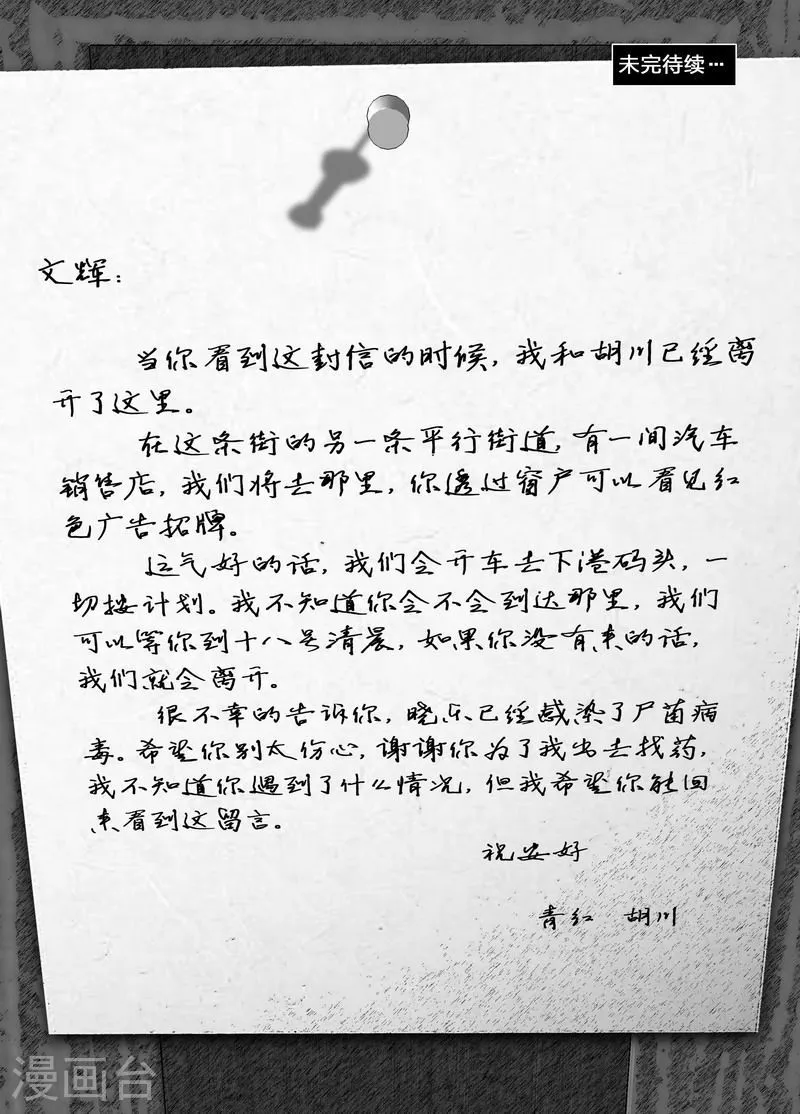 未完待续…
文辉：
当你看到这封信的时候，我和胡川已经离
开了这里。
在这条街的另一条平行街道，有一间汽车
销售店，我们将去那里，你透过窗户可以看见红
色广告招牌。
运气好的话，我们会开车去下港码头，一
切按计划。我不知道你会不会到达那里，我们
可以等你到十八号清晨，如果你没有来的话，
我们就会离开。
很不幸的告诉你，晓乐已经感染了尸菌病
毒。希望你别太伤心，谢谢你为了我出去找药，
我不知道你遇到了什么情况，但我希望你能回
来看到这留言。
祝安好
青红 胡川
漫画台